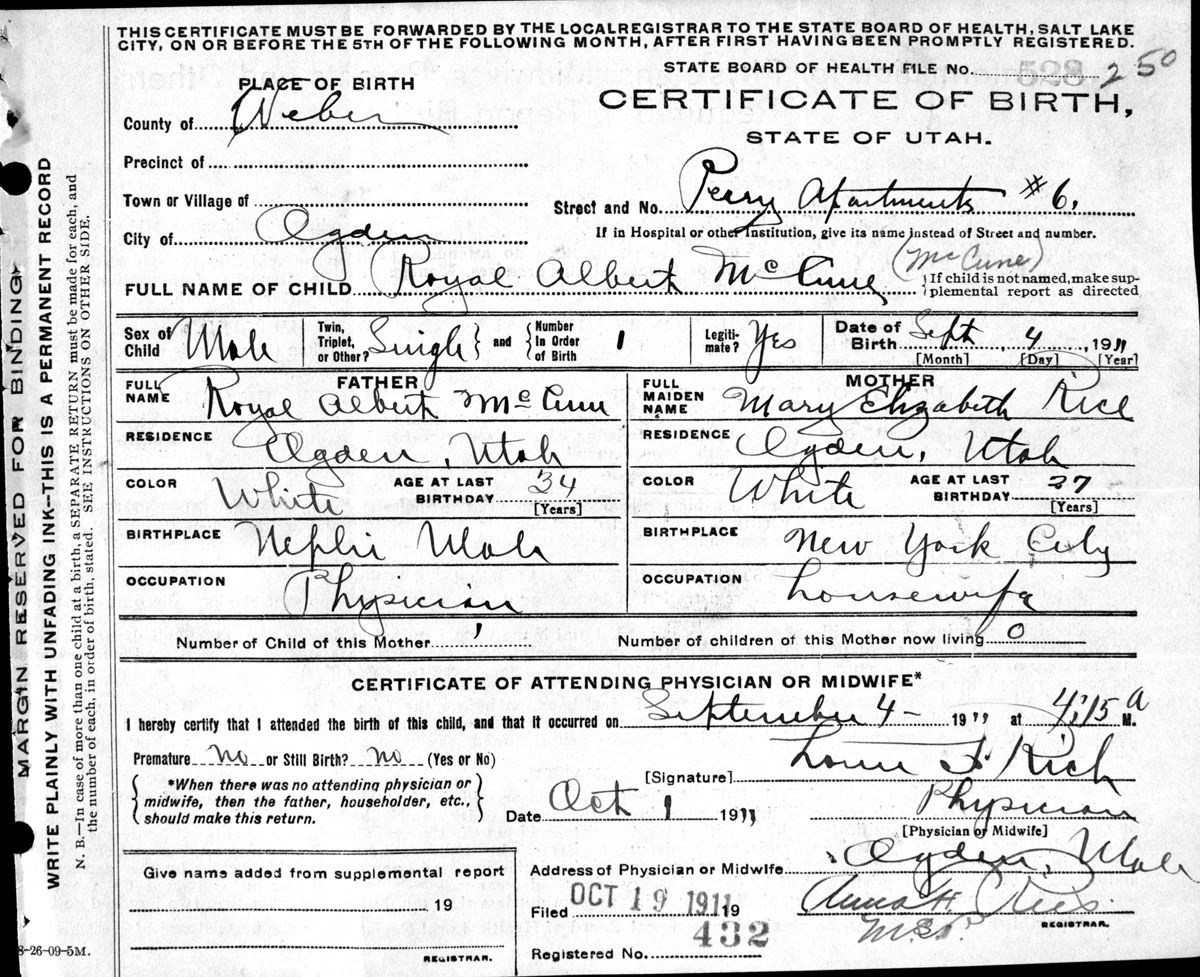 THIS CERTIFICATE MUST BE FORWARDED BY THE LOCAL REGISTRAR TO THE STATE BOARD OF HEALTH, SALT LAKE
CITY, ON OR BEFORE THE 5TH OF THE FOLLOWING MONTH, AFTER FIRST HAVING BEEN PROMPTLY REGISTERED.
STATE BOARD OF HEALTH FILE No. 250
PLACE OF BIRTH
CERTIFICATE OF BIRTH,
STATE OF UTAH.
County of Weber
Precinct of
Town or Village of
Street and No. Perry Apartments #6.
City of Ogden
If in Hospital or other Institution, give its name instead of Street and number.
(McCune)
FULL NAME OF CHILD Royal Albert McCune
{If child is not named, make sup-
plemental report as directed
Sex of Child Male
Twin, Triplet, or Other? Single } and { Number In Order of Birth 1
Legiti- mate? Yes
Date of Birth Sept 4, 1911
[Month] [Day] [Year]
FATHER
FULL NAME Royal Albert McCune
RESIDENCE Ogden, Utah
COLOR White AGE AT LAST BIRTHDAY 34 [Years]
BIRTHPLACE Nephi Utah
OCCUPATION Physician
MOTHER
FULL MAIDEN NAME Mary Elizabeth Rice
RESIDENCE Ogden, Utah
COLOR White AGE AT LAST BIRTHDAY 37 [Years]
BIRTHPLACE New York City
OCCUPATION Housewife
Number of Child of this Mother 1 Number of children of this Mother now living 0
CERTIFICATE OF ATTENDING PHYSICIAN OR MIDWIFE*
I hereby certify that I attended the birth of this child, and that it occurred on September 4 - 1911 at 4:15 A M.
Premature no or Still Birth? no (Yes or No)
[Signature] Rich
{ *When there was no attending physician or
midwife, then the father, householder, etc.,
should make this return. }
Date Oct 1 1911
Physician
[Physician or Midwife]
Address of Physician or Midwife Ogden, Utah
Give name added from supplemental report
19
REGISTRAR.
Filed OCT 19 1911 19
Anna H.
REGISTRAR.
Registered No. 432
8-26-09-5M.
MARGIN RESERVED FOR BINDING
WRITE PLAINLY WITH UNFADING INK—THIS IS A PERMANENT RECORD
N. B.—In case of more than one child at a birth, a SEPARATE RETURN must be made for each, and
the number of each, in order of birth, stated. SEE INSTRUCTIONS ON OTHER SIDE.